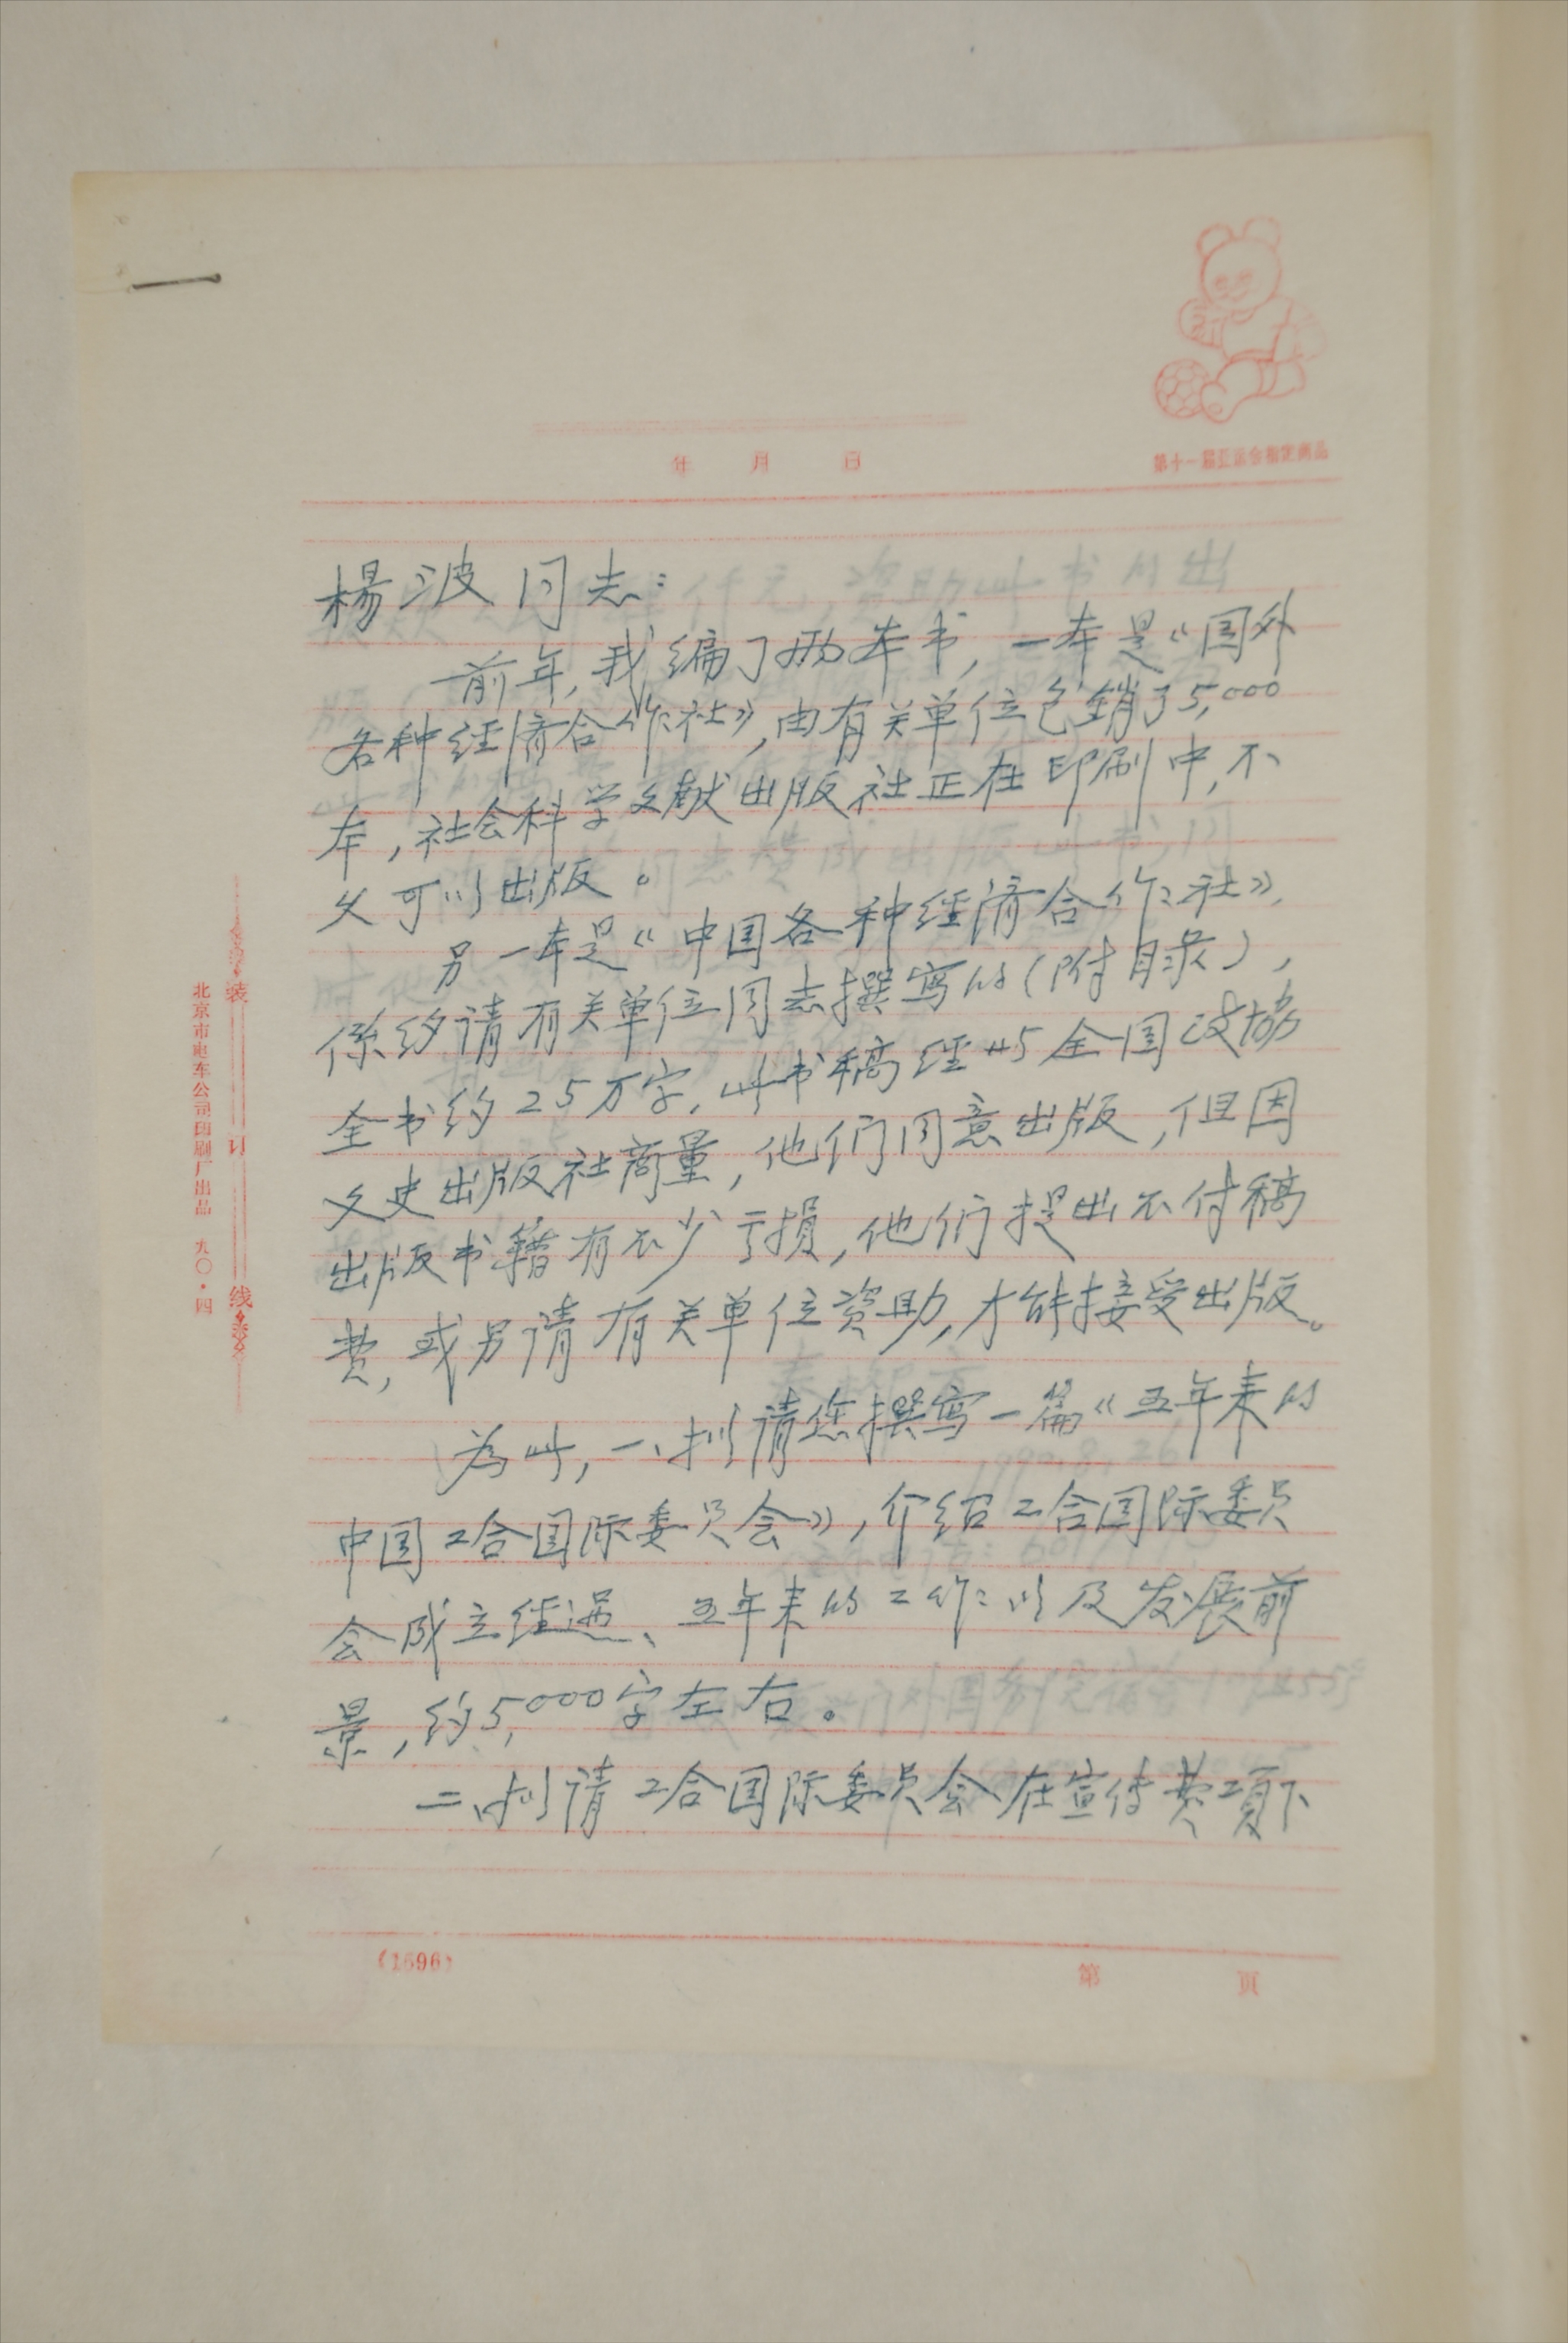 第十一届亚运会指定商品
年 月 日
楊波同志：
前年，我编了两本书，一本是《国外
各种经济合作社》，由有关单位包销了5,000
本，社会科学文献出版社正在印刷中，不
久可以出版。
另一本是《中国各种经济合作社》，
係约请有关单位同志撰写的（附目录），
全书约25万字，此书稿经与全国政协
文史出版社商量，他们同意出版，但因
出版书籍有不少亏损，他们提出不付稿
费，或另请有关单位资助，才能接受出版。
为此，一、拟请您撰写一篇《五年来的
中国工合国际委员会》，介绍工合国际委员
会成立经过、五年来的工作以及发展前
景，约5,000字左右。
二、拟请工合国际委员会在宣传费项下
(1696)
第 页
装 订 线
北京市电车公司印刷厂出品 九〇·四